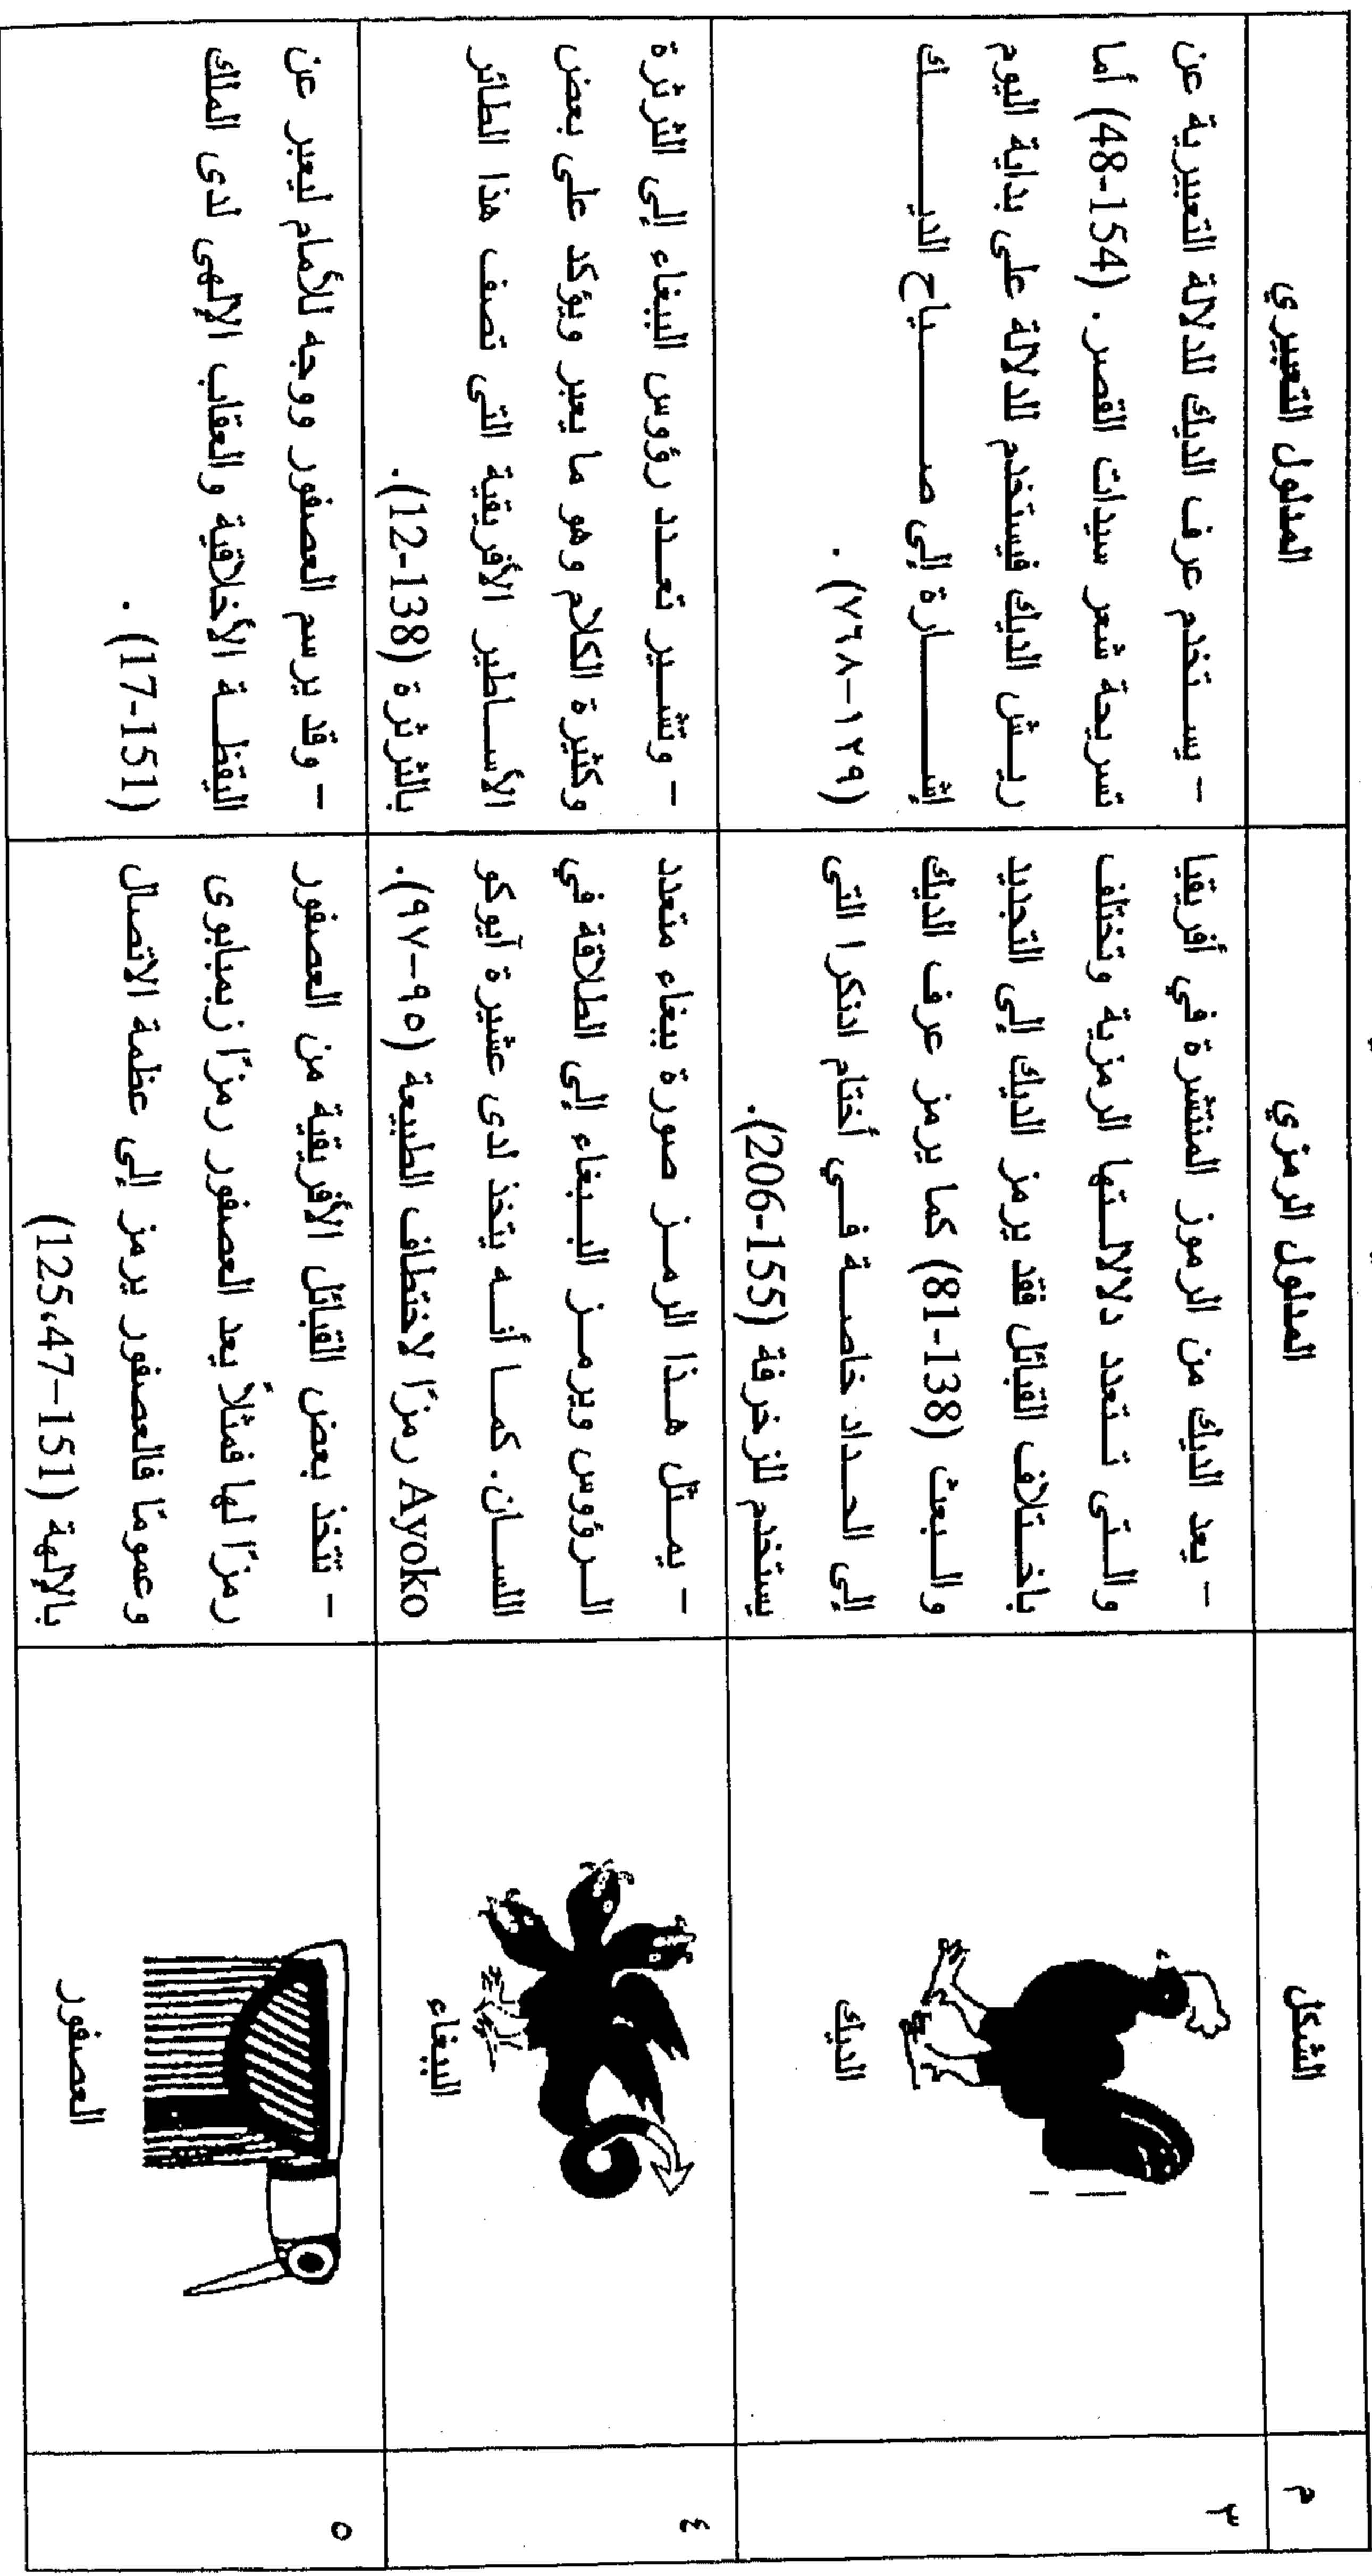 م
الشكل
المدلول الرمزي
المدلول التعبيري
٣
الديك
– يعد الديك من الرموز المنتشرة في أفريقيا
والتى تتعدد دلالاتها الرمزية وتختلف
باختلاف القبائل فقد يرمز الديك إلى التجديد
والبعث (81-138) كما يرمز عرف الديك
إلى الحداد خاصة في أختام ادنكرا التى
يستخدم للزخرفة (206-155).
– يستخدم عرف الديك للدلالة التعبيرية عن
تسريحة شعر سيدات القصر. (48-154) أما
ريش الديك فيستخدم للدلالة على بداية اليوم
إشارة إلى صياح الديك
(١٢٩-٧٦٨) .
٤
الببغاء
– يمثل هذا الرمز صورة ببغاء متعدد
الرؤوس ويرمز الببغاء إلى الطلاقة في
اللسان. كما أنه يتخذ لدى عشيرة آيوكو
Ayoko رمزًا لاختطاف الطبيعة (٩٥-٩٧).
– وتشير تعدد رؤوس الببغاء إلى الثرثرة
وكثيرة الكلام وهو ما يعبر ويؤكد على بعض
الأساطير الأفريقية التى تصف هذا الطائر
بالثرثرة (12-138).
٥
العصفور
– تتخذ بعض القبائل الأفريقية من العصفور
رمزًا لها فمثلاً يعد العصفور رمزًا زيمبابوى
وعمومًا فالعصفور يرمز إلى عظمة الاتصال
بالإلهة (151–47،125)
– وقد يرسم العصفور ووجه للأمام ليعبر عن
اليقظة الأخلاقية والعقاب الإلهى لدى الملك
(17-151) .